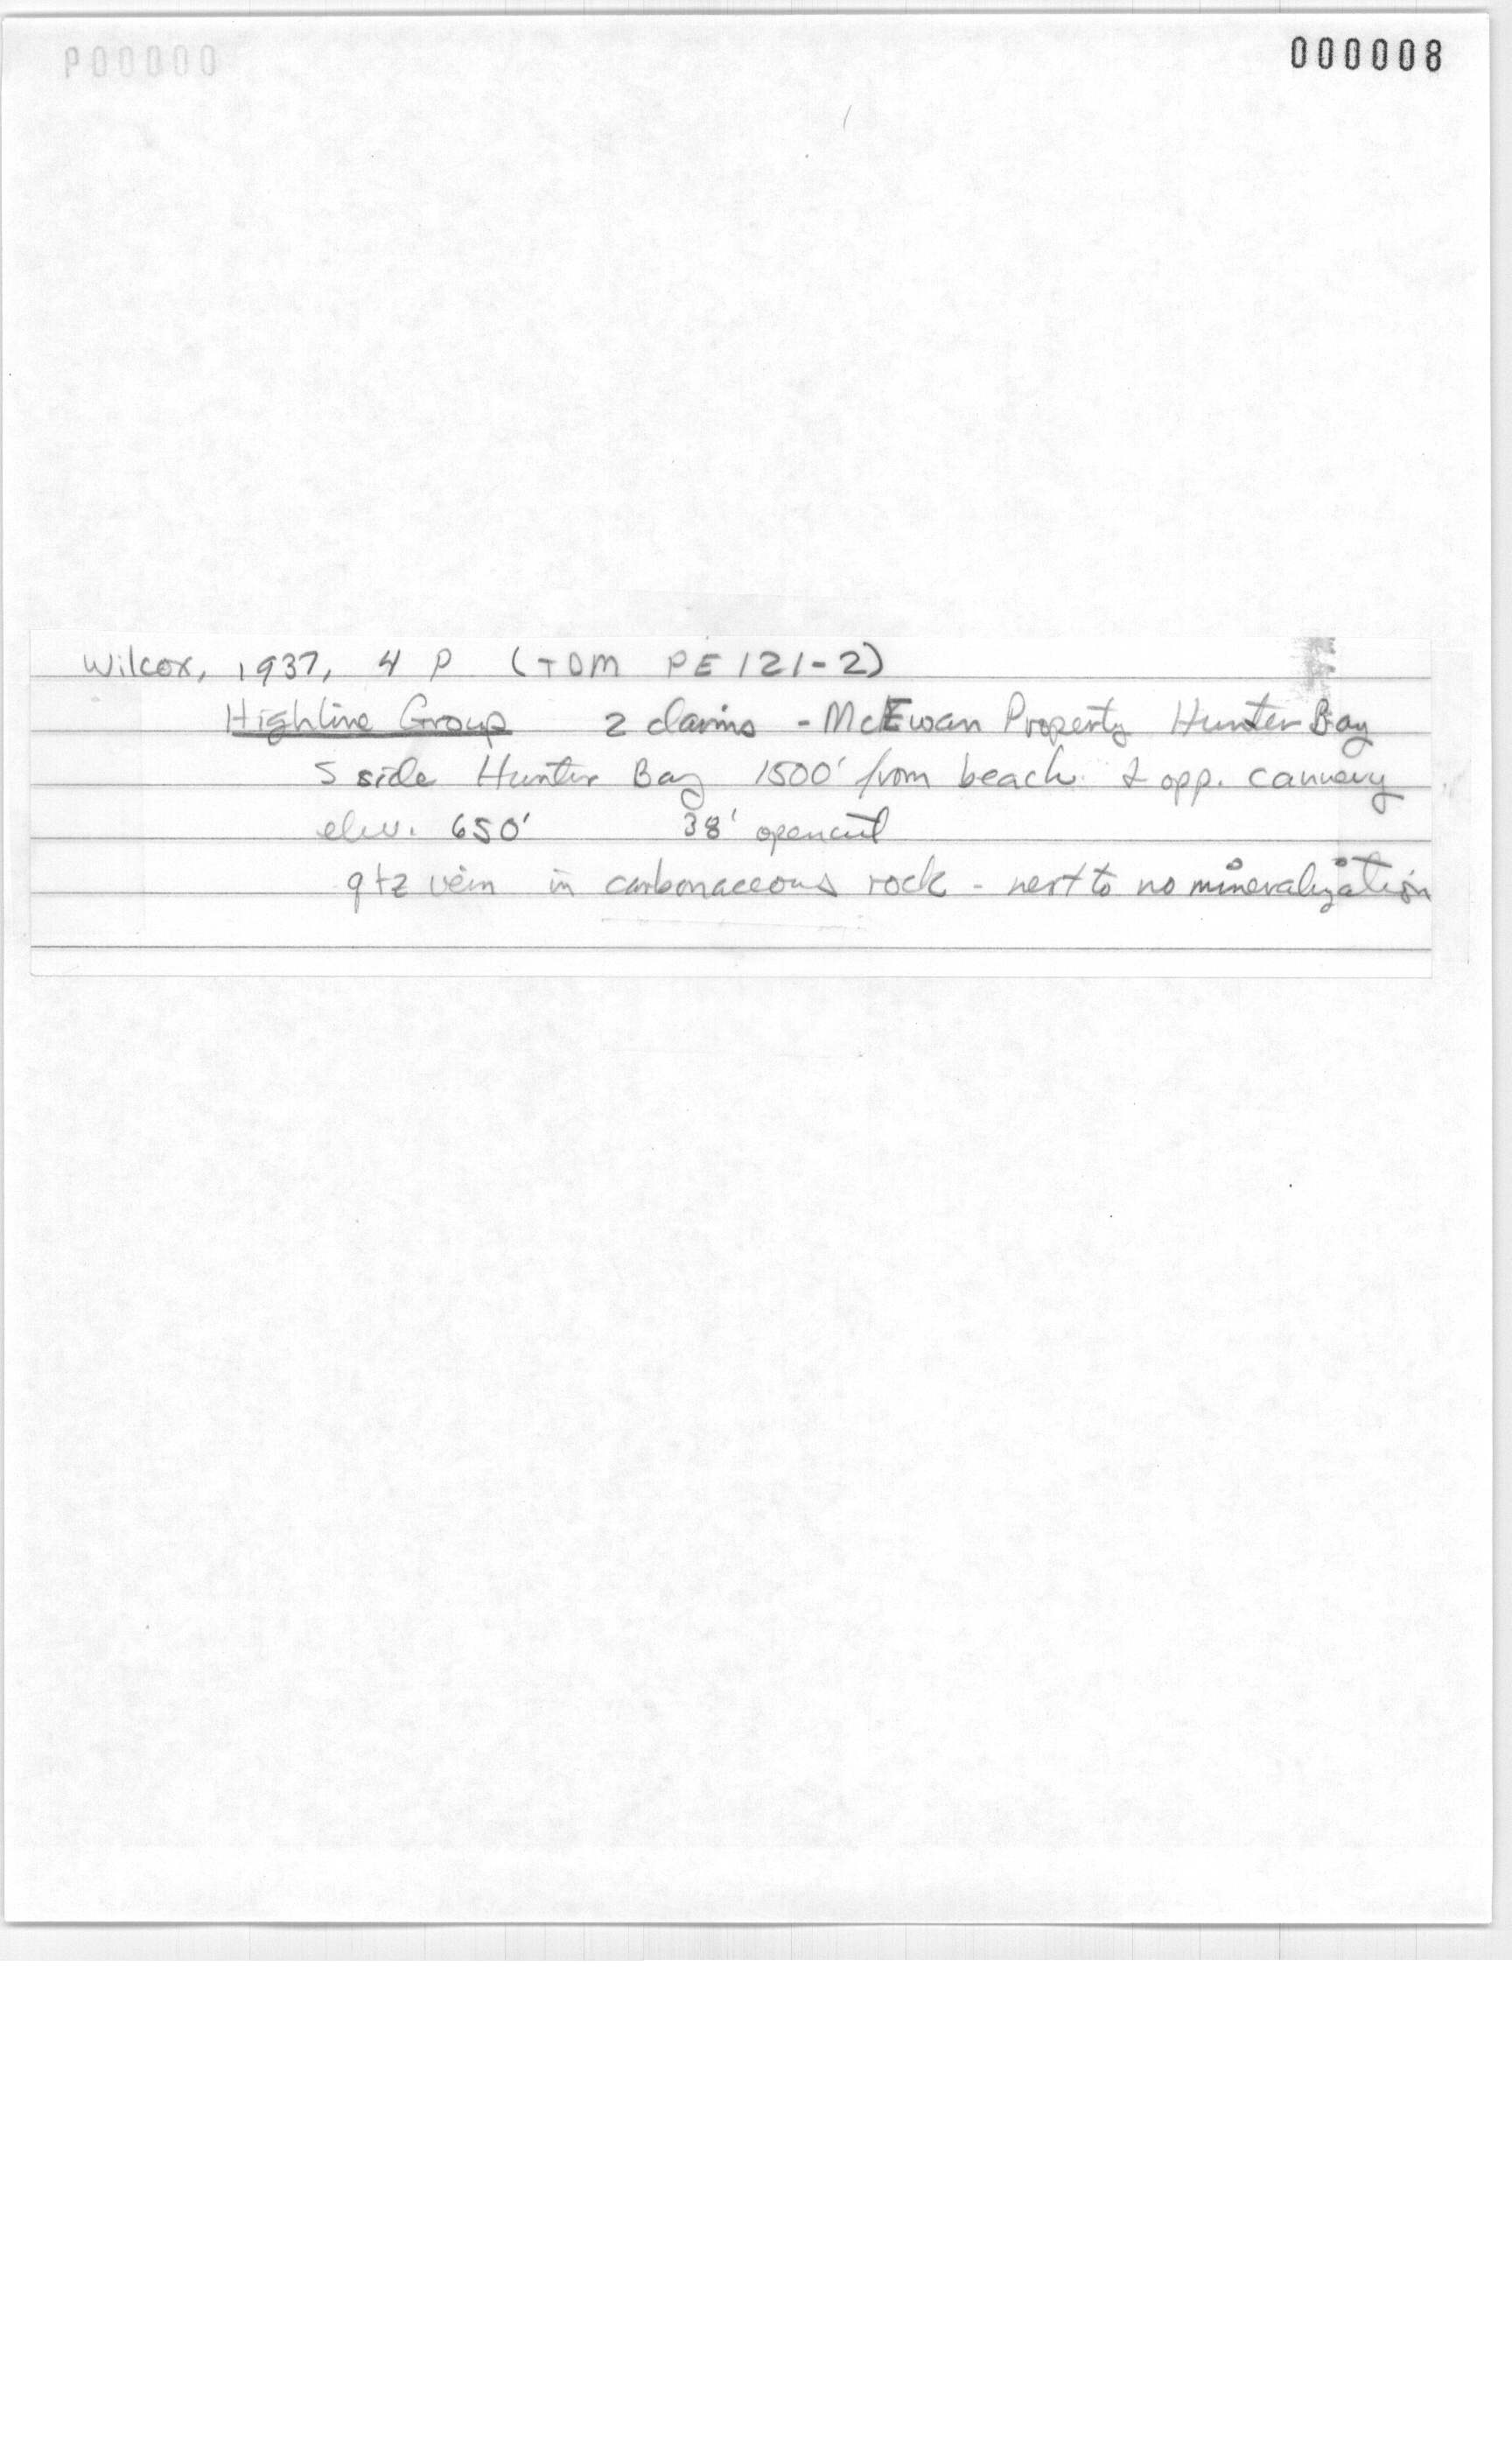 P00000
000008
Wilcox, 1937, 4 P (TDM PE 121-2)
Highline Group 2 claims - McEwan Property Hunter Bay
S side Hunter Bay 1500' from beach & opp. cannery
elev. 650' 38' opencut
qtz vein in carbonaceous rock - next to no mineralization